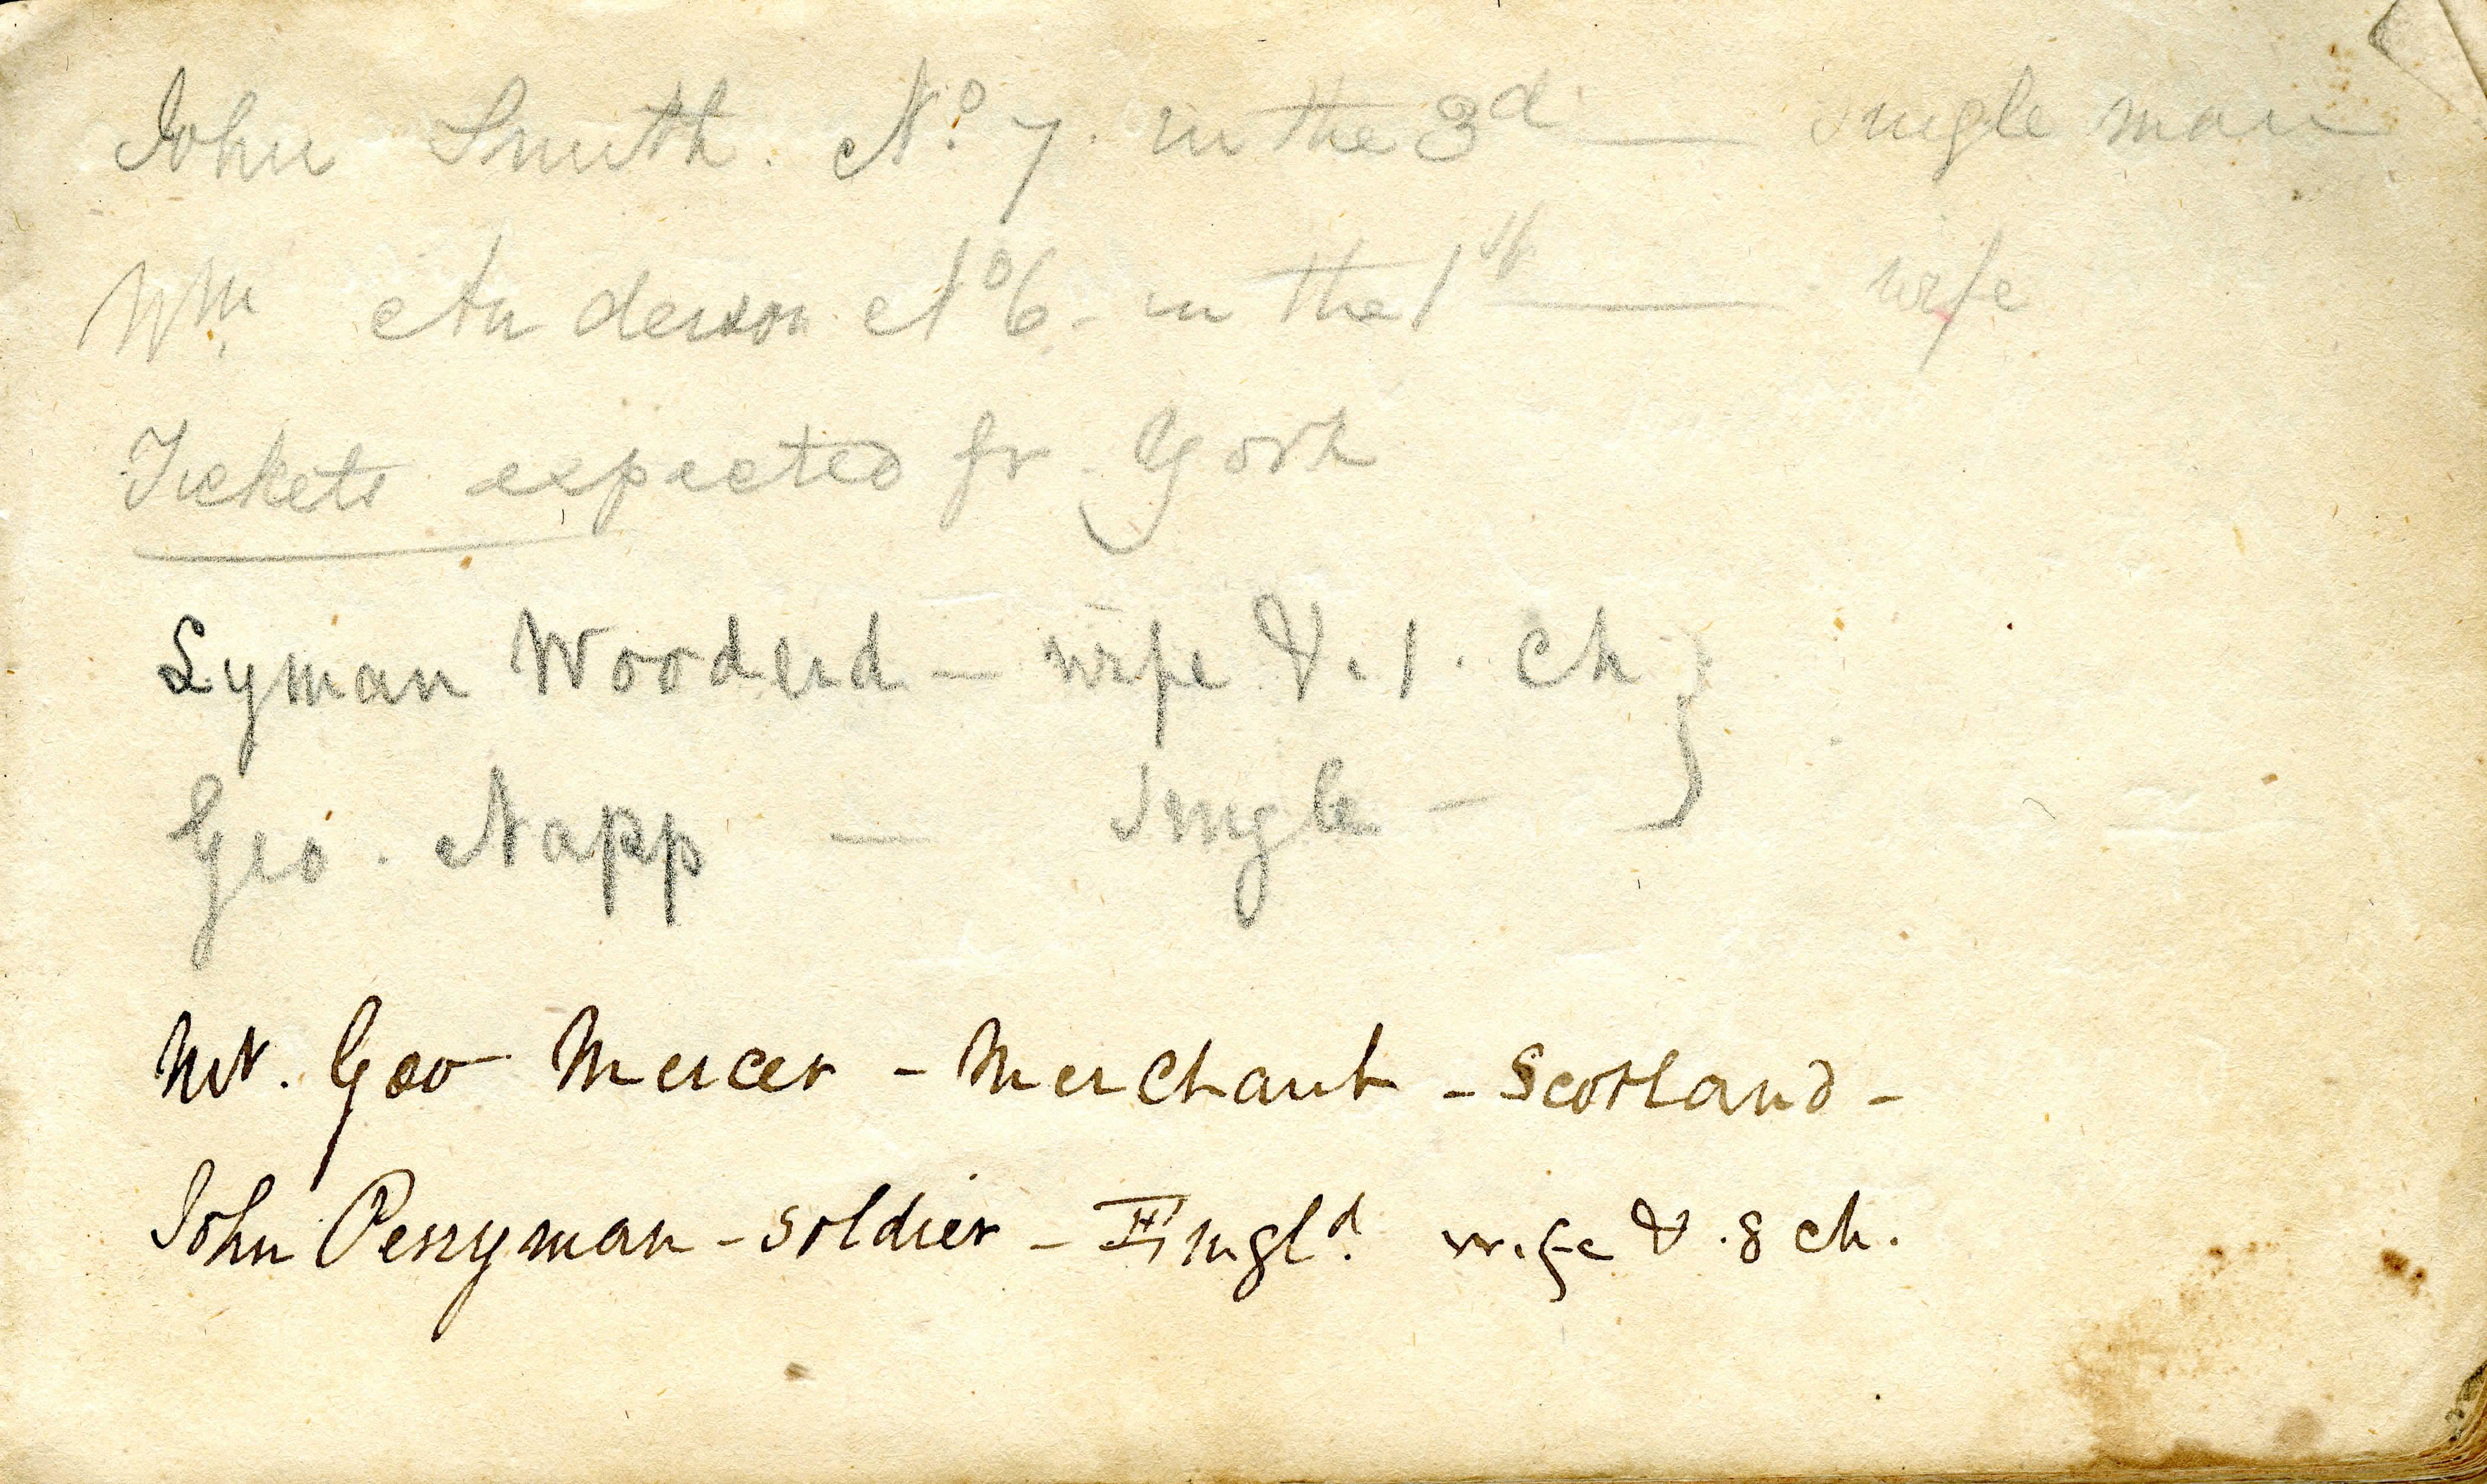 John Smith. No. 7. in the 3d — single man
Wm. Anderson No 6 - in the 1st — wife
Tickets expected fr. York
Lyman Wooderd — wife & . 1 . ch }
Geo . Napp — single —
Mr. Geo Mercer - Merchant - Scotland -
John Perryman - soldier - Engld. wife & . 8 ch .